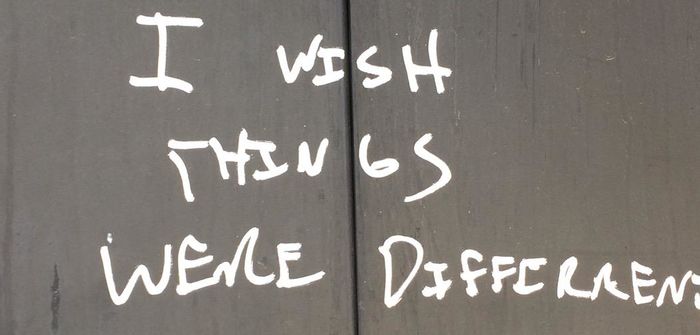 I WISH
THINGS
WERE DIFFERRENT